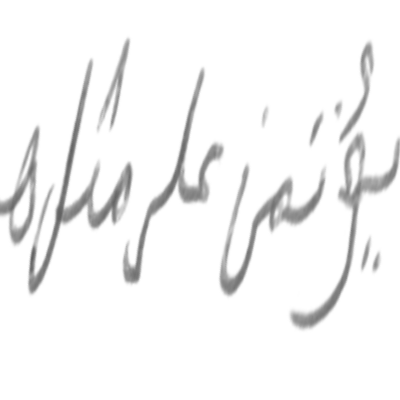 يؤتمن على مثله